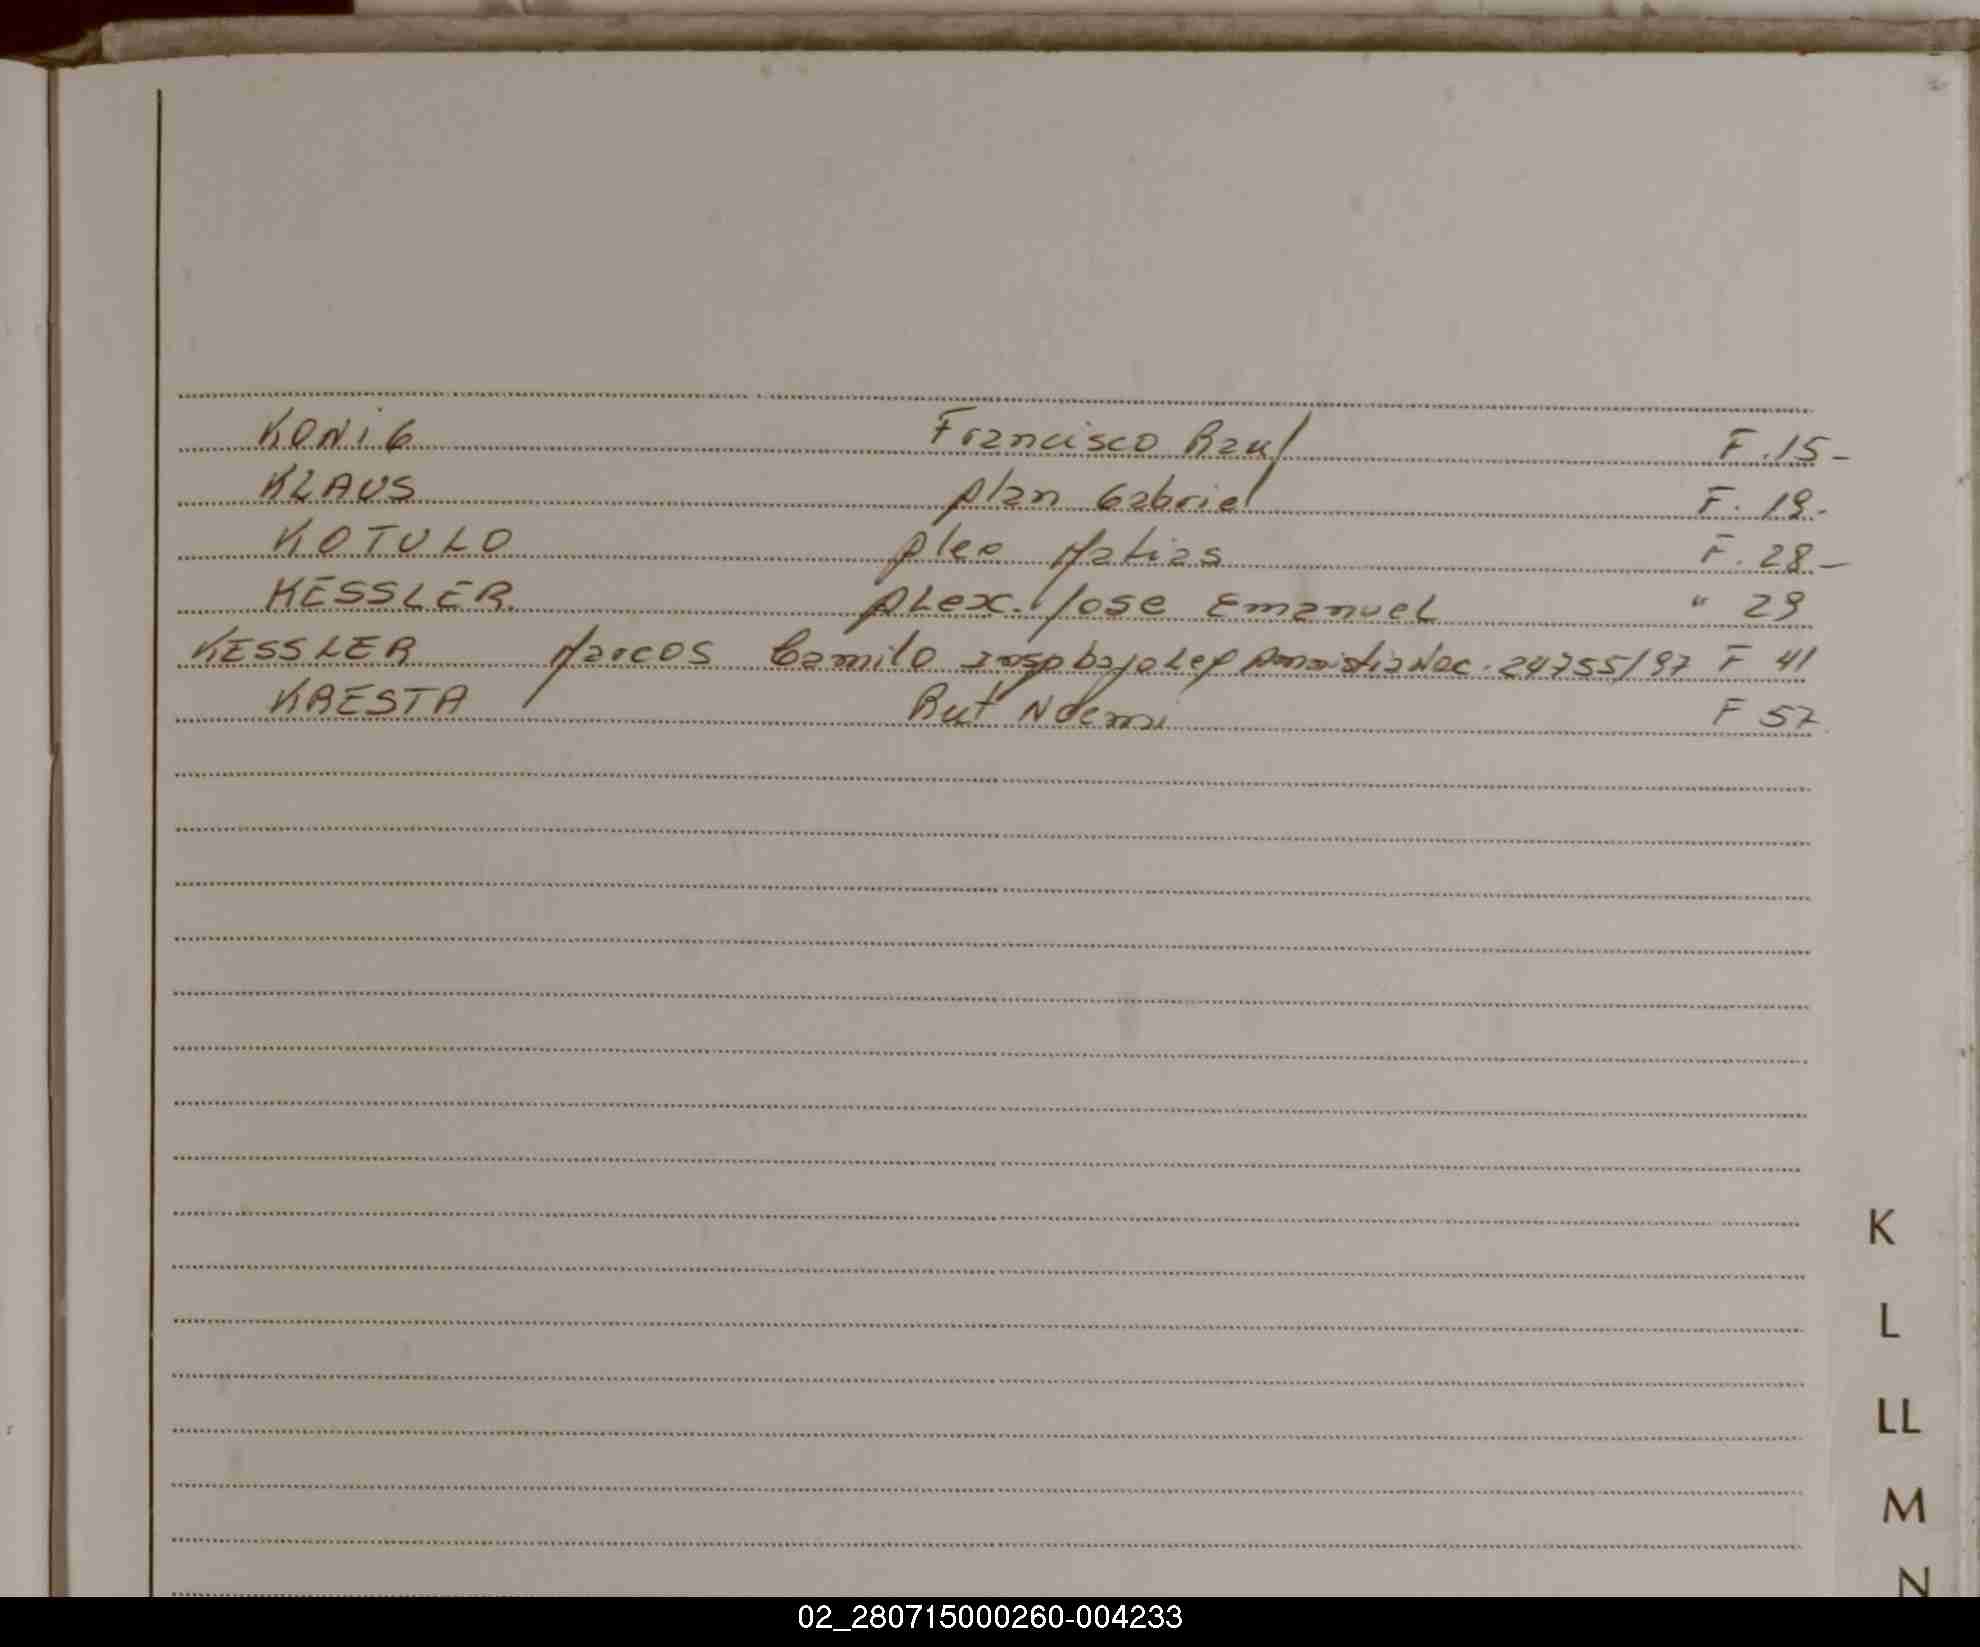 KONiG Francisco Raul F.15-
KLAUS Alan Gabriel F. 19.
KOTULO Alex Matias F. 28-
KESSLER. ALex. Jose Emanuel " 29
KESSLER Marcos Camilo insp bajo Ley Amnistia Nac. 24755/97 F 41
KRESTA Rut Noemi F 57
K
L
LL
M
N
02_280715000260-004233